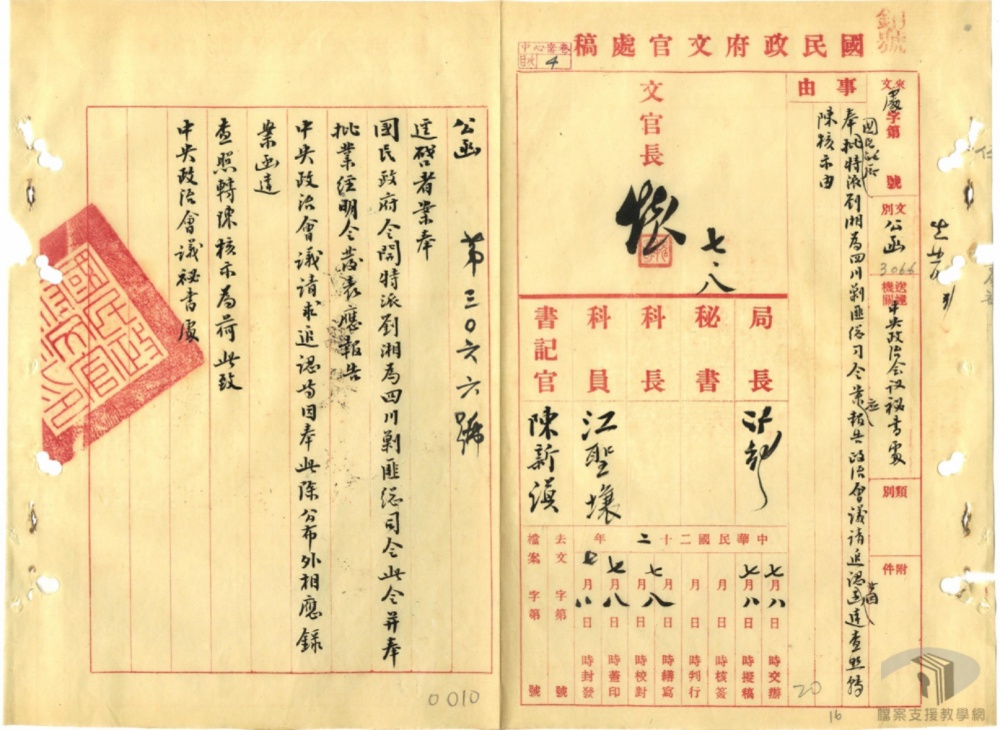 國民政府文官處稿
事由
國民政府
奉批特派劉湘為四川剿匪總司令業報告政治會議請追認函達查照轉
陳核示由
文處字第 號
文別 公函
3066
送達機關 中央政治會議秘書處
類別
附件
文官長
七、八
局長
秘書
科長
科員 江聖壤
書記官 陳新演
中華民國二十二年
七月八日 時交辦
七月八日 時擬稿
月 日 時核簽
月 日 時判行
月 日 時繕寫
七月八日 時校對
七月八日 時蓋印
七月八日 時封發
去文 字第 號
檔案 字第 號
公函 第三〇六六號
逕啓者業奉
國民政府令開特派劉湘為四川剿匪總司令此令并奉
批業經明令發表應報告
中央政治會議請求追認等因奉此除公布外相應錄
案函達
查照轉陳核示為荷此致
中央政治會議秘書處
國民政府文官處印
卷宗中心
目次 4
20
16
0010
檔案支援教學網